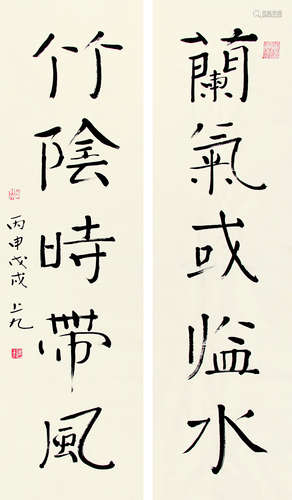 蘭氣或臨水
竹陰時帶風
丙申戊戌 上九